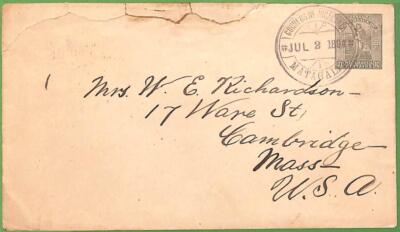 JUL 3 1894
MATAGAL
Mrs. W. E. Richardson-
17 Ware St,
Cambridge
Mass-
U.S.A.